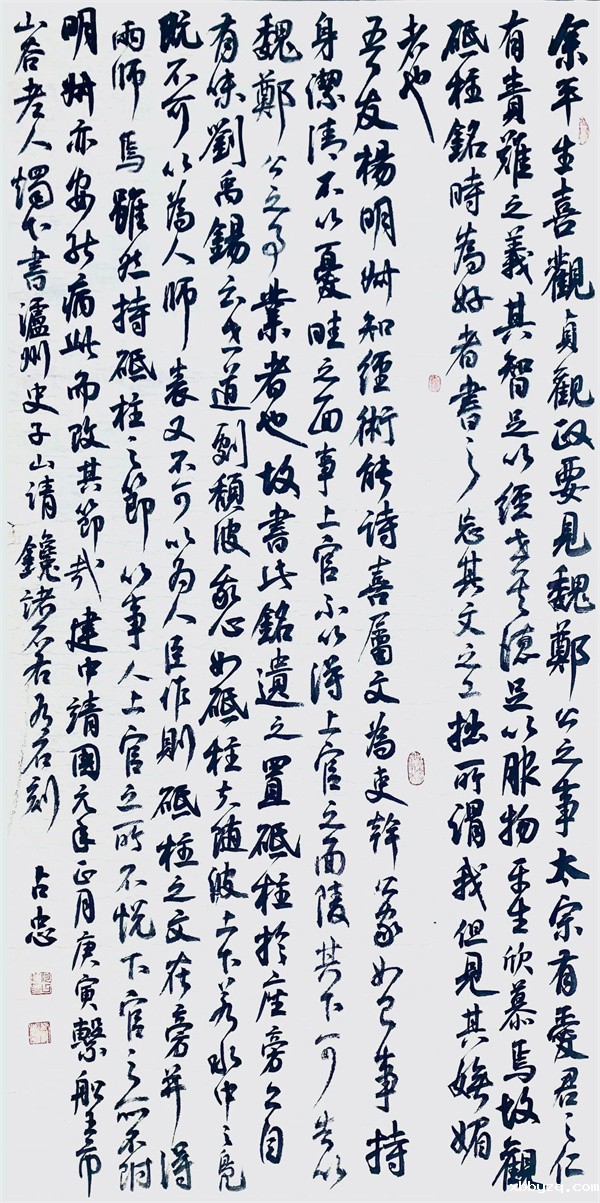 余平生喜觀貞觀政要見魏鄭公之事太宗有愛君之仁
有責難之義其智足以經世其德足以服物平生欣慕焉故觀
砥柱銘時為好者書之忘其文之工拙所謂我但見其嫵媚
者也
吾友楊明叔知經術能詩喜屬文為吏幹公家如己事持
身潔清不以憂畦之面事上官不以得上官之面陵其下可告以
魏鄭公之事業者也故書此銘遺之置砥柱於座旁亦自
有味劉禹錫云世道劇頹波我心如砥柱夫隨波上下若水中之鳧
既不可以為人師表又不可以為人臣作則砥柱之文在旁並得
兩師焉雖然持砥柱之節以事人上官之所不悅下官之所不附
明叔亦安能病此而改其節哉建中請國元年正月庚寅繫船王市
山谷老人燭下書瀘州史子山請鑱諸石右為石刻 占忠
bbyzq.com